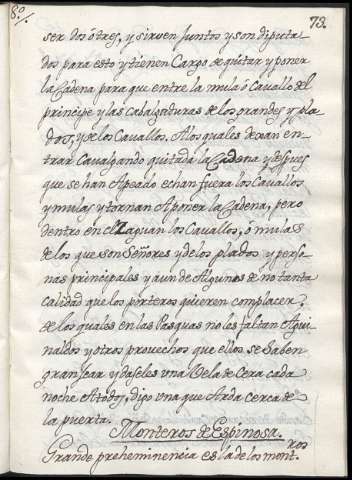 8º/ 73.
ser dos ó tres, y sirven juntos y son diputa-
dos para esto y tienen Cargo de quitar y poner
la Cadena para que entre la mula ó Cavallo del
principe y las Cabalgaduras de los grandes y pla-
dos, y de los Cavallos. A los quales dexan en-
trar Cavalgando quitada la Cadena y despues
que se han Apeado echan fuera los Cavallos
y mulas y tornan A poner la Cadena, pero
dentro en el Zaguan los Cavallos, ó mulas
de los que son Señores y de los plados y perso-
nas principales y aun de Algunos de no tanta
calidad que los porteros quieren complacer;
de los quales en las Pasquas no les faltan Agui-
naldos y otros provechos que ellos se Saben
grangear y daseles una Vela de Cera cada
noche A todos, digo una que Arda cerca de
la puerta.
Monteros de Espinosa.
Grande preheminencia es la de los mont.
ros